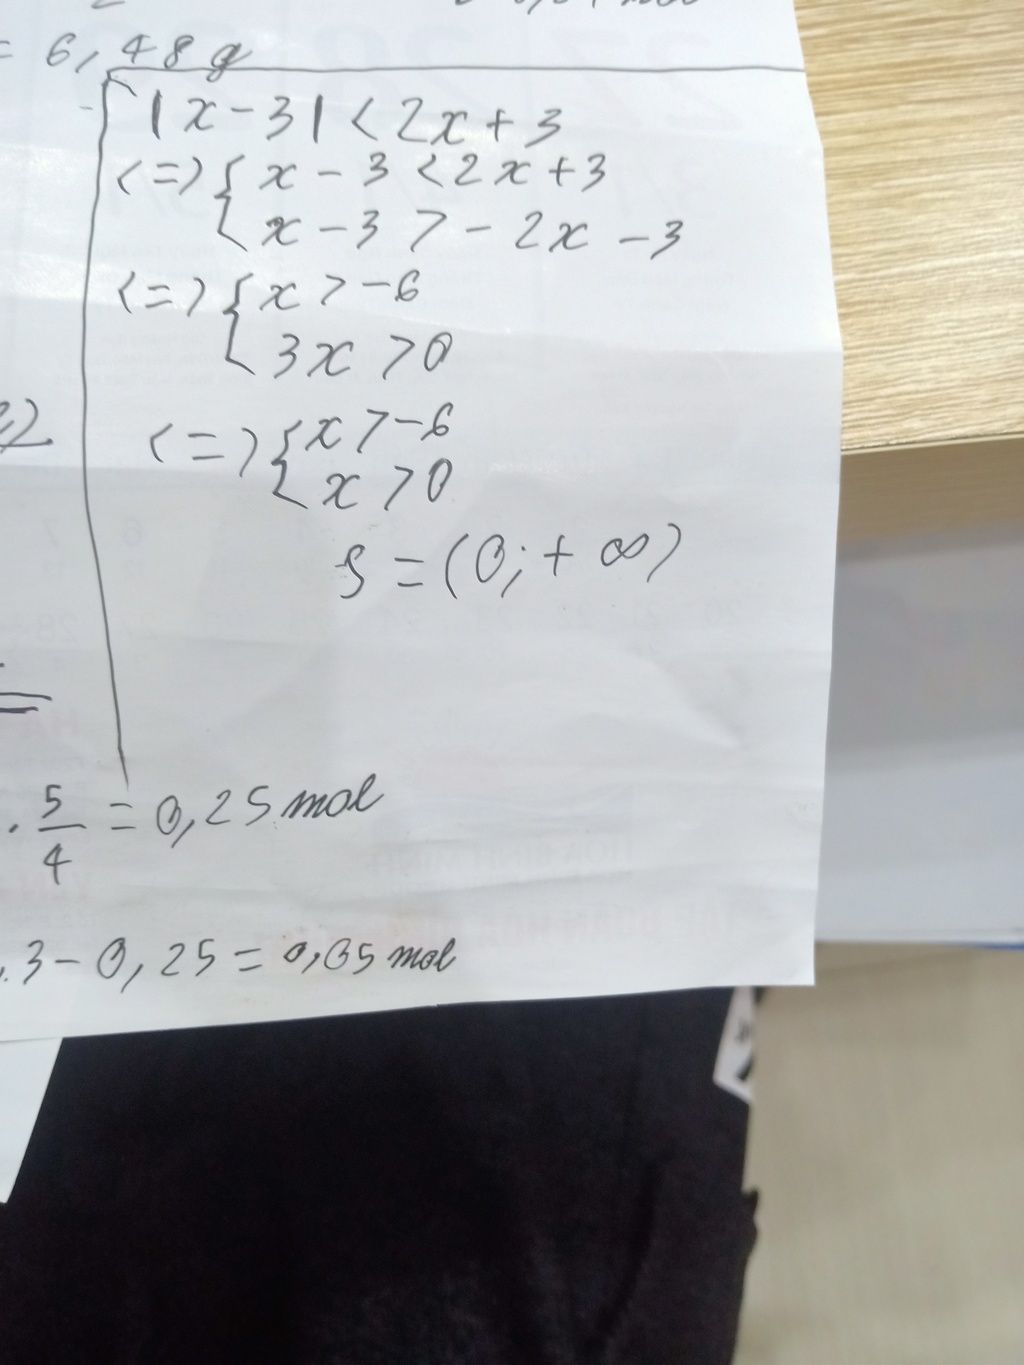 = 6,48 g
|x - 3| < 2x + 3
<=> { x - 3 < 2x + 3
x - 3 > - 2x - 3
<=> { x > -6
3x > 0
<=> { x > -6
x > 0
S = (0; + ∞)
. 5/4 = 0,25 mol
.3 - 0,25 = 0,05 mol